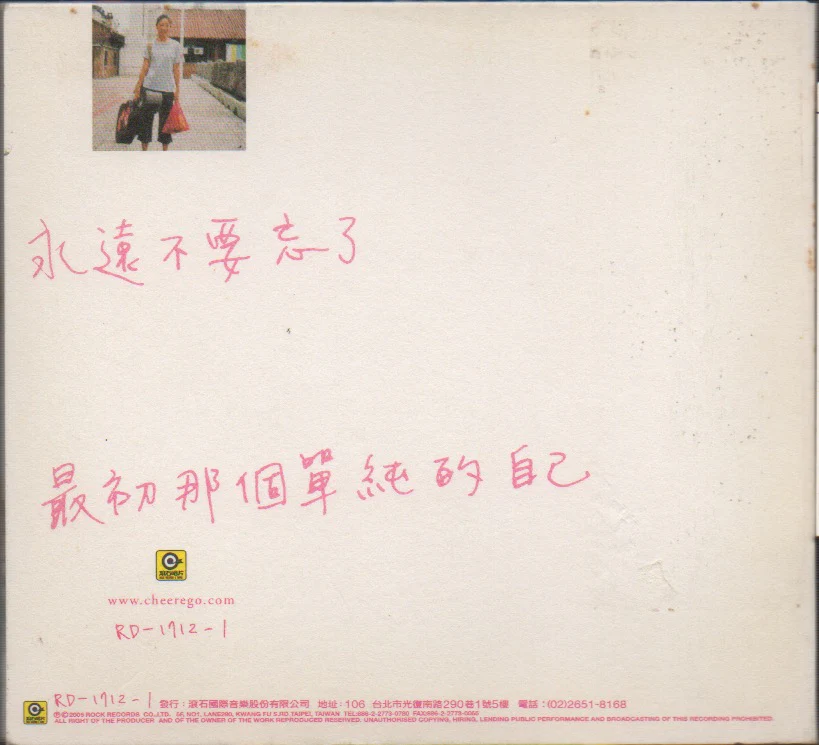 永遠不要忘了
最初那個單純的自己
滾石唱片
www.cheerego.com
RD-1712-1
RD-1712-1 發行：滾石國際音樂股份有限公司 地址：106 台北市光復南路290巷1號5樓 電話：(02)2651-8168
Ⓟ©2005 ROCK RECORDS CO.,LTD. 5F, NO1, LANE290, KWANG FU S.RD.TAIPEI, TAIWAN TEL:886-2-2773-0790 FAX:886-2-2773-0068
ALL RIGHT OF THE PRODUCER AND OF THE OWNER OF THE WORK REPRODUCED RESERVED. UNAUTHORISED COPYING, HIRING, LENDING PUBLIC PERFORMANCE AND BROADCASTING OF THIS RECORDING PROHIBITED.